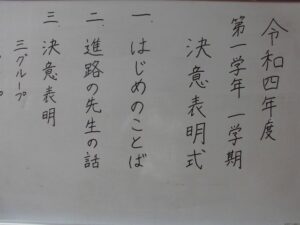 令和四年度
第一学年 一学期
決意表明式
一 はじめのことば
二 進路の先生の話
三 決意表明
三グループ